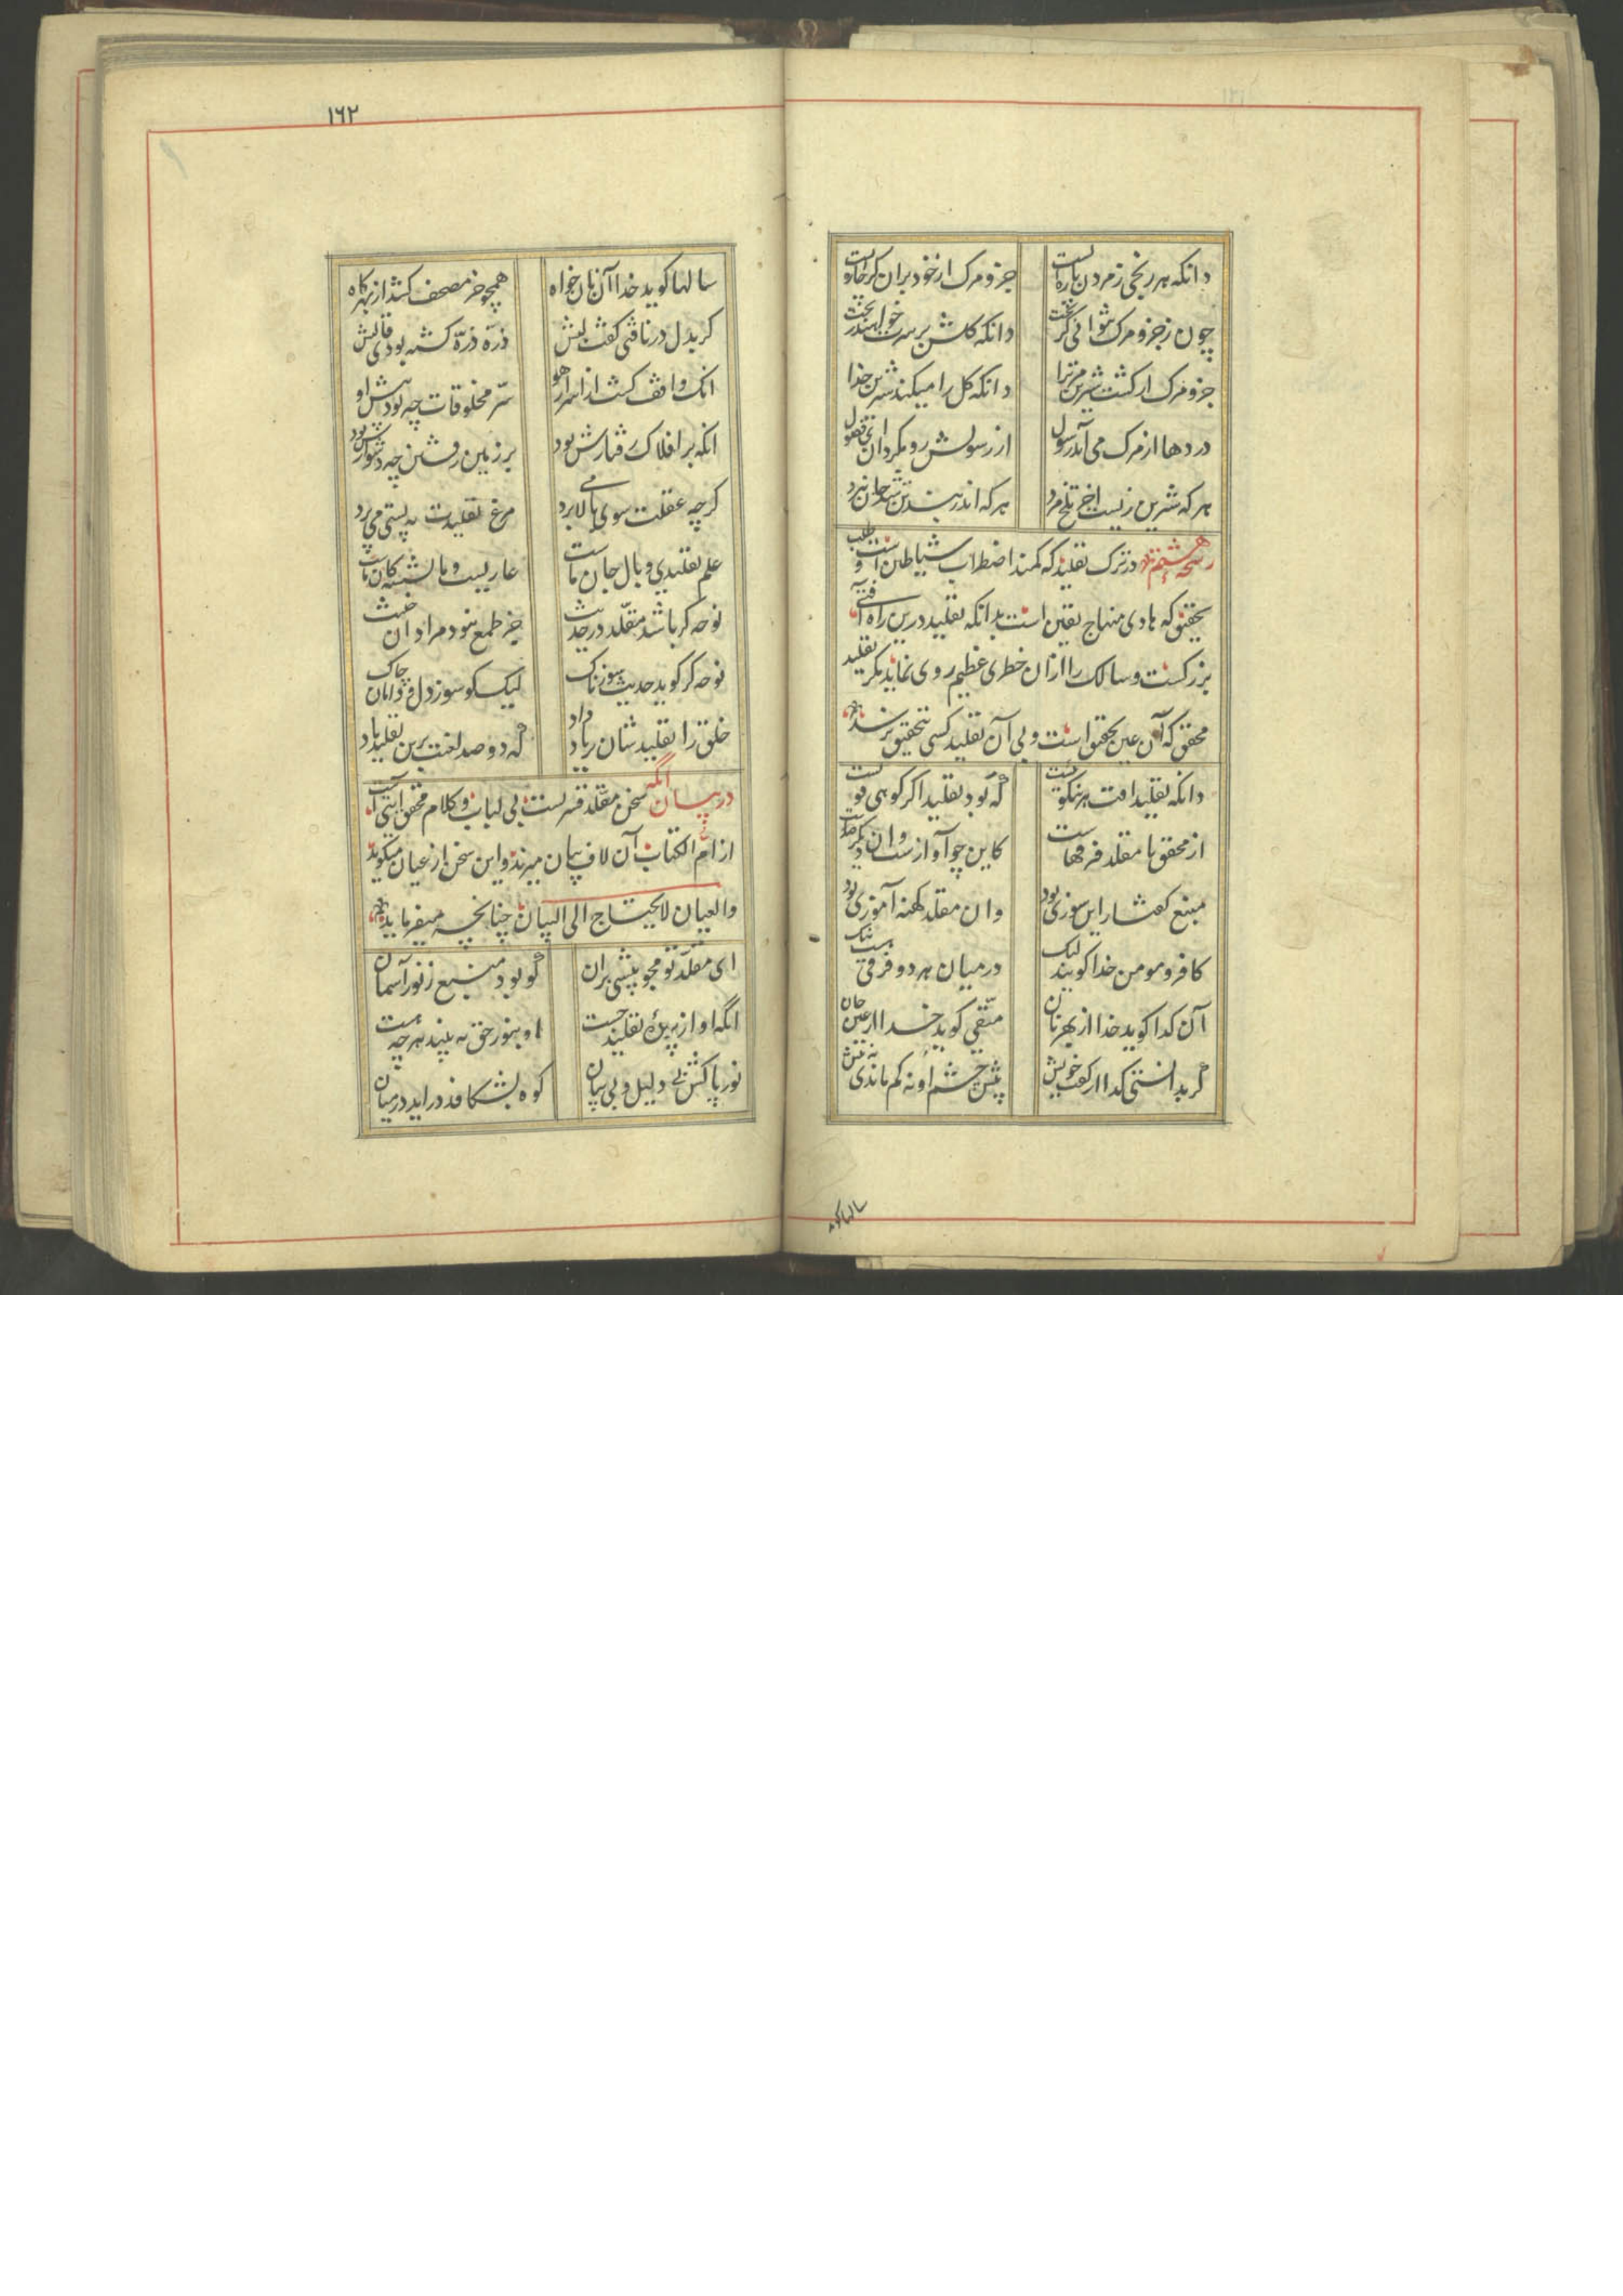 دانکه هر رنجی ز مردن پاره ایست جزو مرک از خود بران کر چاره ایست
چون ز جزو مرک نتوانی کریخت دانکه کلش بر سرت خواهند ریخت
جزو مرک ار کشت شیرین مر ترا دانکه کل را میکند شیرین خدا
دردها از مرک می آید رسول از رسولش رو مکردان ای فضول
هر که شیرین زیست اخر تلخ مرد هر که اندر بند تن شد جان نبرد
رشحه هشتم در ترک تقلید که کمند اضطراب شیاطین است و طلب
تحقیق که هادی منهاج یقین است بدانکه تقلید درین راه آفتی
بزرکست و سالک را ازان خطری عظیم روی نماید مکر تقلید
محقق که آن عین تحقیق است و بی آن تقلید کسی بتحقیق نرسد
دانکه تقلید افت هر نیکویست که بود تقلید اکر کوهی قویست
از محقق تا مقلد فرقهاست کاین چو آوازست وان دیکر صداست
منبع کفتار این سوزی بود وان مقلد کهنه آموزی بود
کافر و مومن خدا کویند لیک درمیان هر دو فرقی هست نیک
آن کدا کوید خدا از بهر نان متّقی کوید خدا از عین جان
کر بدانستی کدا از کفت خویش پیش چشم او نه کم ماندی نه بیش
سالها کو
١٦٢
سالها کوید خدا آن نان خواه همچو خر مصحف کشد از بهر کاه
کر بدل در تافتی کفت لبش ذرّه ذرّه کشته بودی قالبش
انک واقف کشت از اسرار هو سرّ مخلوقات چه بود پیش او
انکه بر افلاک رفتارش بود بر زمین رفتن چه دشوارش بود
کرچه عقلت سوی بالا می پرد مرغ تقلیدت به پستی می پرد
علم تقلیدی وبال جان ماست عاریست و ما نشسته کان ماست
نوحه کر باشد مقلّد در حدیث جز طمع نبود مراد ان خبیث
نوحه کر کوید حدیث سوزناک لیک کو سوز دل و دامان چاک
خلق را تقلیدشان بر باد داد که دو صد لعنت برین تقلید باد
در بیان انکه سخن مقلد قشریست بی لباب و کلام محقق ایتی است
از امّ الکتاب آن لاف بیان میزند و این سخن از عیان میکوید
والعیان لایحتاج الی البیان چنانچه میفرماید
ای مقلّد تو مجو پیشی بران کو بود منبع ز نور آسمان
انکه او از پرده تقلید جست او بنور حق به بیند هر چه هست
نور پاکش بی دلیل و بی بیان کوه بشکافد دراید درمیان